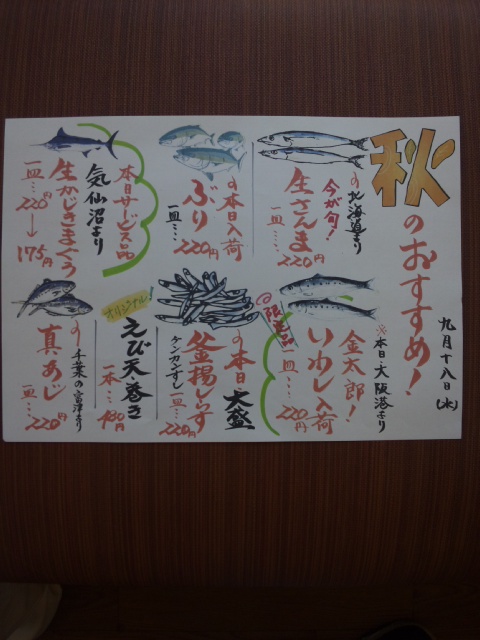 秋のおすすめ!
九月十八日(水)
北海道より
今が旬!
生さんま
一皿… 220円
本日入荷
ぶり
一皿… 220円
本日サービス品
気仙沼より
生かじきまぐろ
一皿… 220円→175円
※本日・大阪港より
金太郎!
いわし入荷
一皿… 220円
本日大盛
釜揚しらず
グンカンずし
一皿… 220円
オリジナル!
えび天巻き
一本… 180円
千葉の富津より
真あじ
一皿… 220円